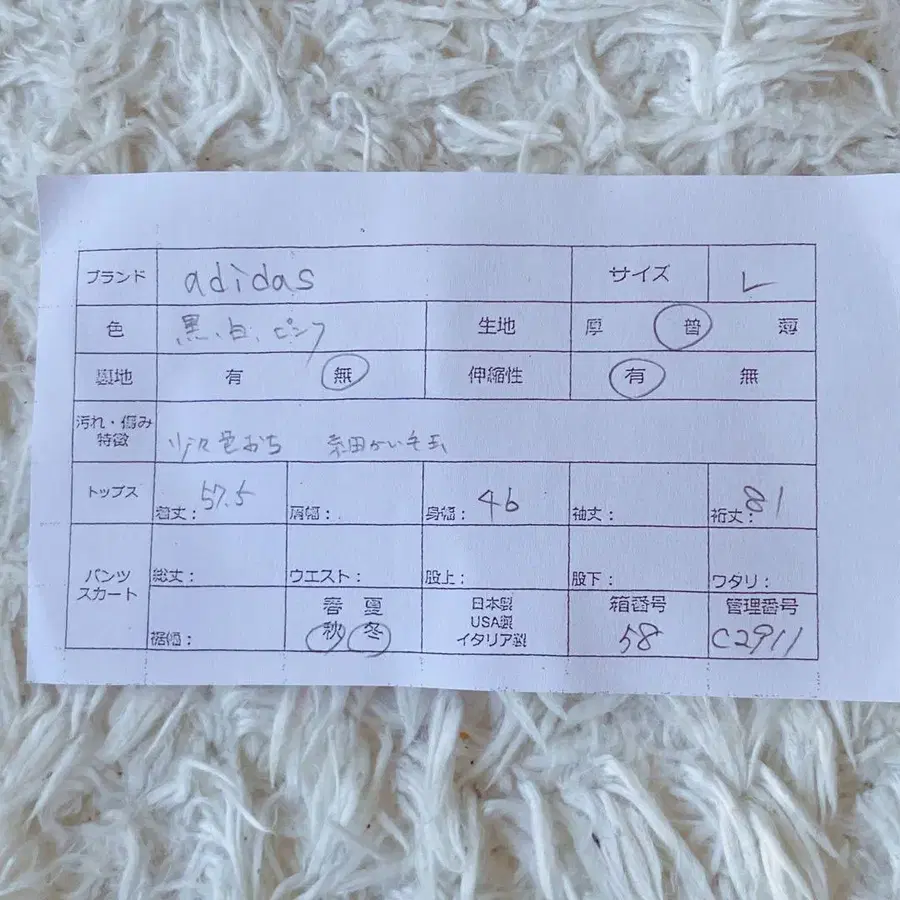 ブランド adidas サイズ L
色 黒、白、ピンク 生地 厚 普 薄
裏地 有 無 伸縮性 有 無
汚れ・傷み
特徴 色おち 細かい毛玉
トップス 着丈: 57.5 肩幅: 身幅: 46 袖丈: 裄丈: 81
パンツ
スカート 総丈: ウエスト: 股上: 股下: ワタリ:
裾幅: 春 夏
秋 冬
日本製
USA製
イタリア製
箱番号
58
管理番号
C2911